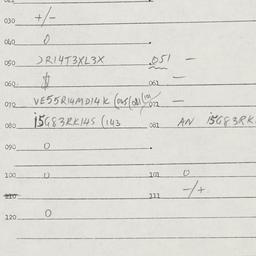 030 +/-
040 0
050 JR14T3XL3X .051 -
060 061 -
070 VE55R14MD14K 072 -
080 i5G83RK14S (143 081 AN i5G83RK
090 0
100 0 101 0
110 111 -/+
120 0